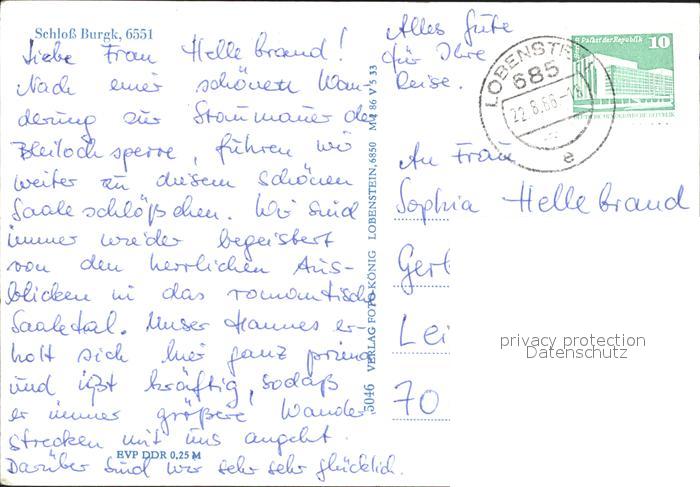 Schloß Burgk, 6551
Liebe Frau Hellebrand!
Nach einer schönen Wan-
derung zur Staumauer der
Bleilochsperre, führen wir
weiter zu diesem schönen
Saaleschlößchen. Wir sind
immer wieder begeistert
von den herrlichen Aus-
blicken in das romantische
Saaletal. Unser Hannes er-
holt sich hier ganz prima
und ißt kräftig, sodaß
er immer größere Wander
strecken mit uns angeht.
EVP DDR 0,25 M
Darüber sind wir sehr sehr glücklich.
5046 VERLAG FOTO-KÖNIG LOBENSTEIN, 6850 M 1 86 V 5 33
Alles Gute
für Ihre
Reise.
LOBENSTEIN
685
22.8.86-18
e
Palast der Republik 10
DEUTSCHE DEMOKRATISCHE REPUBLIK
An Frau
Sophia Hellebrand
Ger
Lei
70
privacy protection
Datenschutz